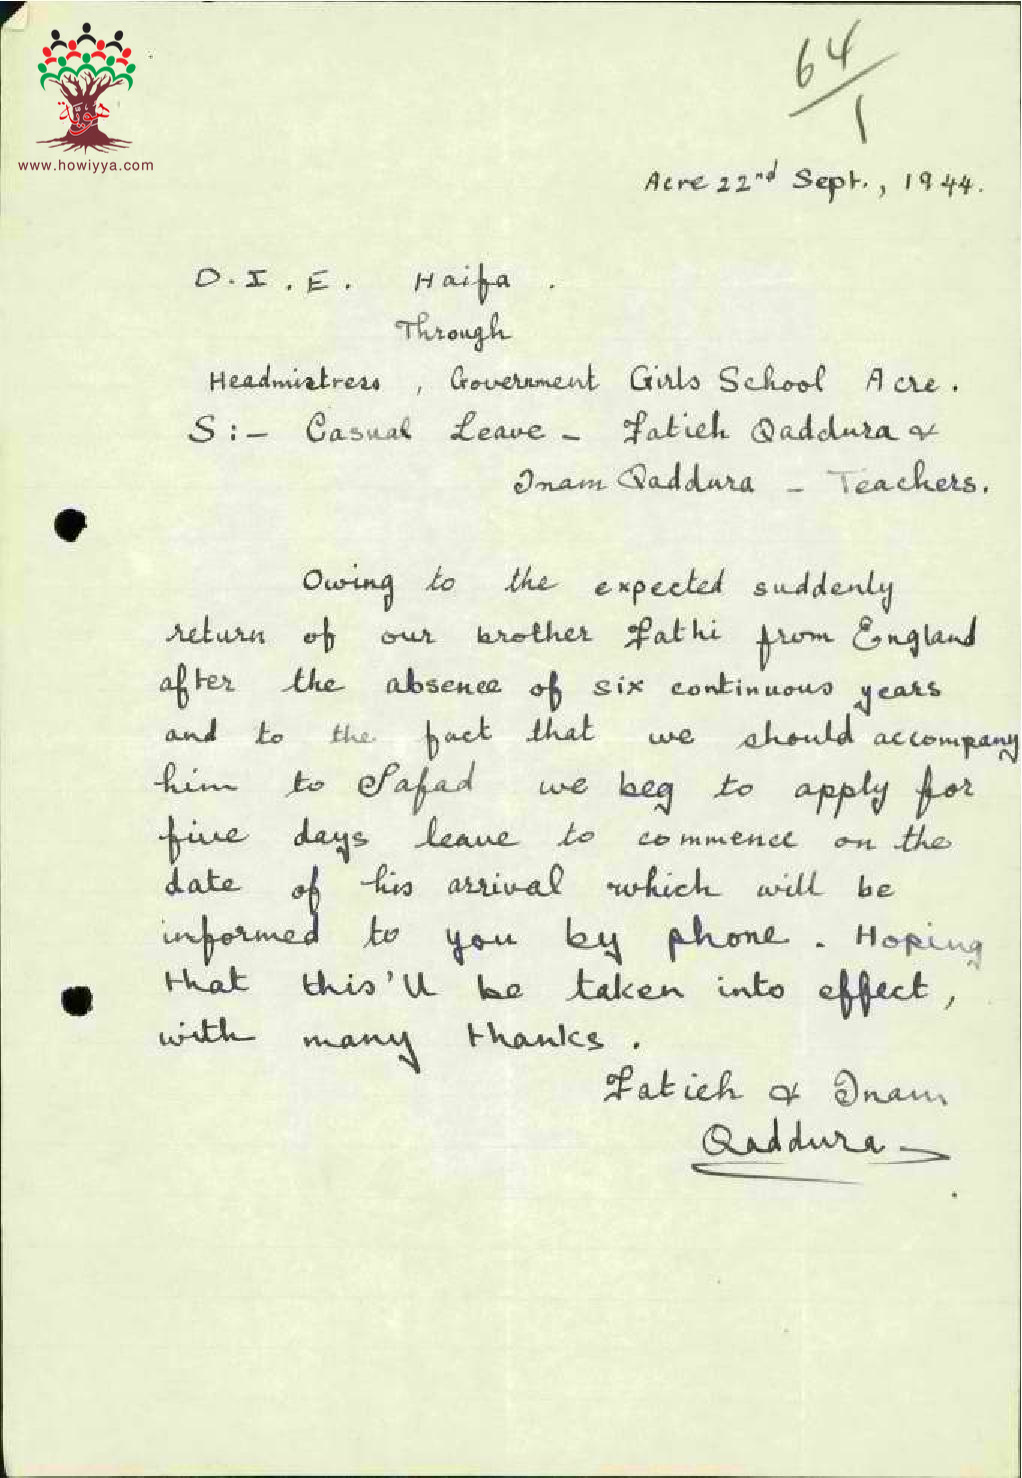 هوية
www.howiyya.com
64/1
Acre 22nd Sept., 1944.
D.I.E. Haifa.
Through
Headmistress, Government Girls School Acre.
S:- Casual Leave - Fatieh Qaddura &
Inam Qaddura - Teachers.
Owing to the expected suddenly
return of our brother Fathi from England
after the absence of six continuous years
and to the fact that we should accompany
him to Safad we beg to apply for
five days leave to commence on the
date of his arrival which will be
informed to you by phone. Hoping
that this'll be taken into effect,
with many thanks.
Fatieh & Inam
Qaddura